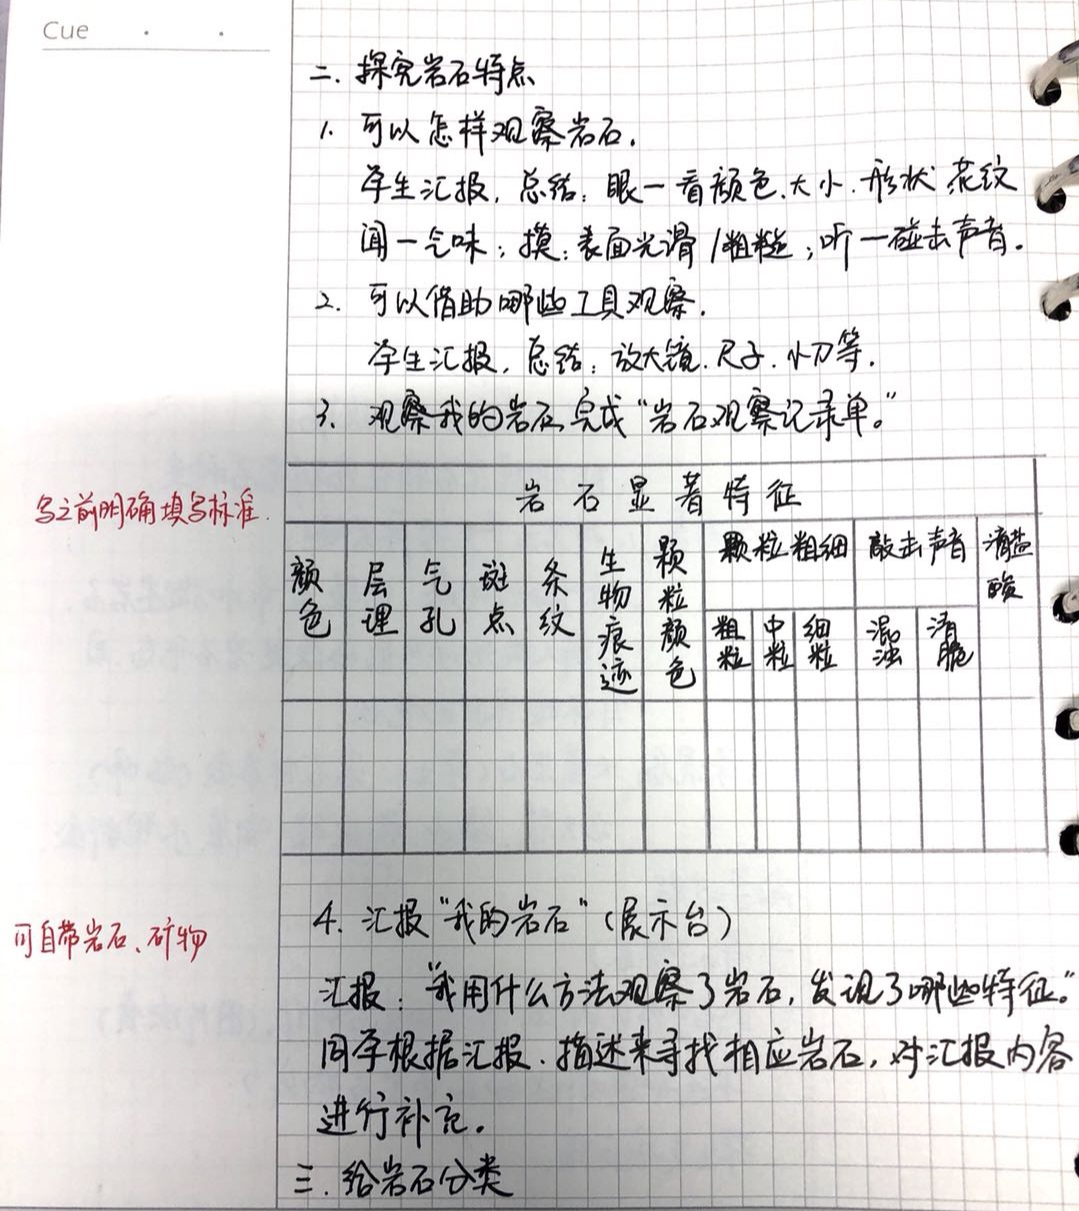 Cue
二. 探究岩石特点
1. 可以怎样观察岩石.
学生汇报, 总结: 眼—看颜色、大小、形状 花纹
闻—气味; 摸: 表面光滑/粗糙; 听—碰击声音.
2. 可以借助哪些工具观察.
学生汇报, 总结: 放大镜. 尺子. 小刀等.
3. 观察我的岩石, 完成“岩石观察记录单。”
写之前明确填写标准.
岩石显著特征
颜色 层理 气孔 斑点 条纹 生物痕迹 颗粒颜色 颗粒粗细 敲击声音 滴盐酸
粗粒 中粒 细粒 混浊 清脆
4. 汇报“我的岩石”(展示台)
可自带岩石、矿物
汇报: “我用什么方法观察了岩石, 发现了哪些特征。”
同学根据汇报. 描述来寻找相应岩石, 对汇报内容
进行补充.
三. 给岩石分类